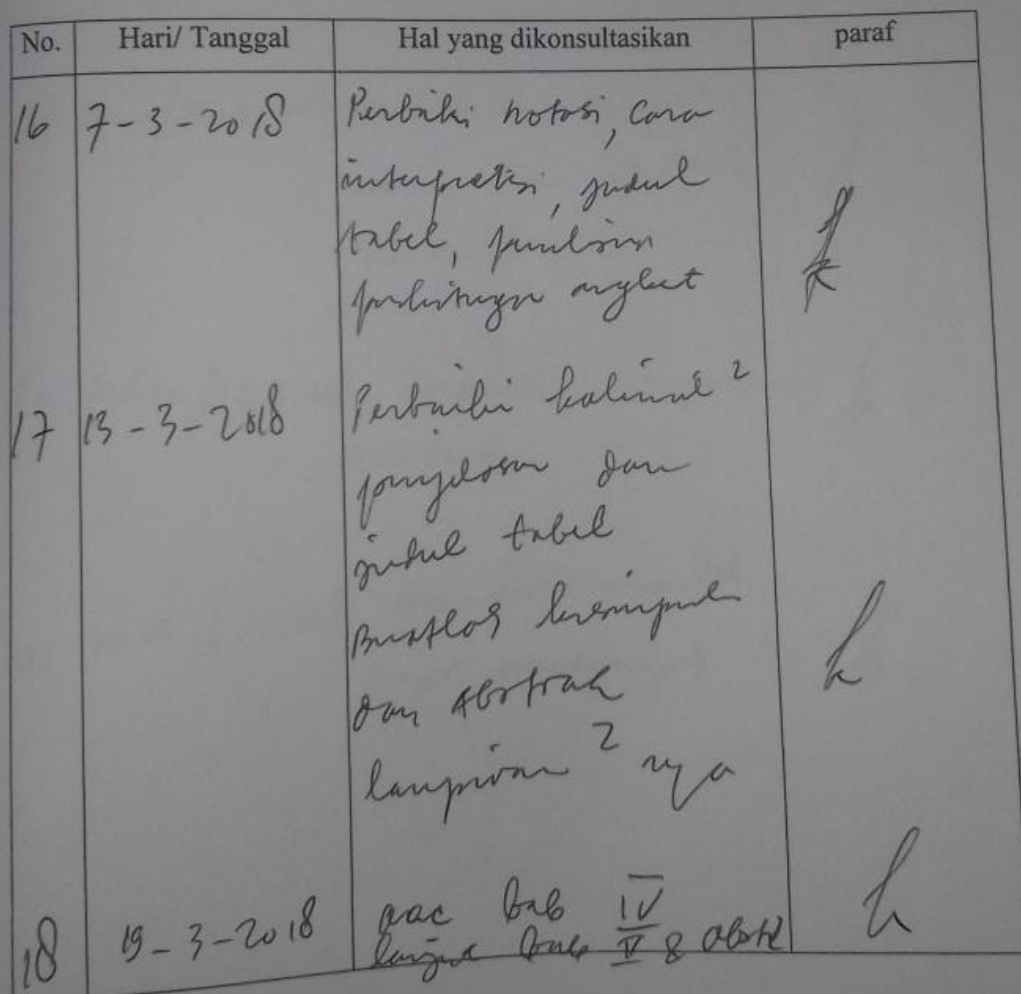 No. Hari/ Tanggal Hal yang dikonsultasikan paraf
16 7-3-2018 Perbaiki notasi, cara
interpretasi, judul
tabel, penulisan
perhitungan angket
17 13-3-2018 Perbaiki kalimat 2
penjelasan dan
judul tabel
Buatlah kesimpulan
dan Abstrak
lampiran 2 nya
18 19-3-2018 acc bab IV
lanjut bab V & abstrak